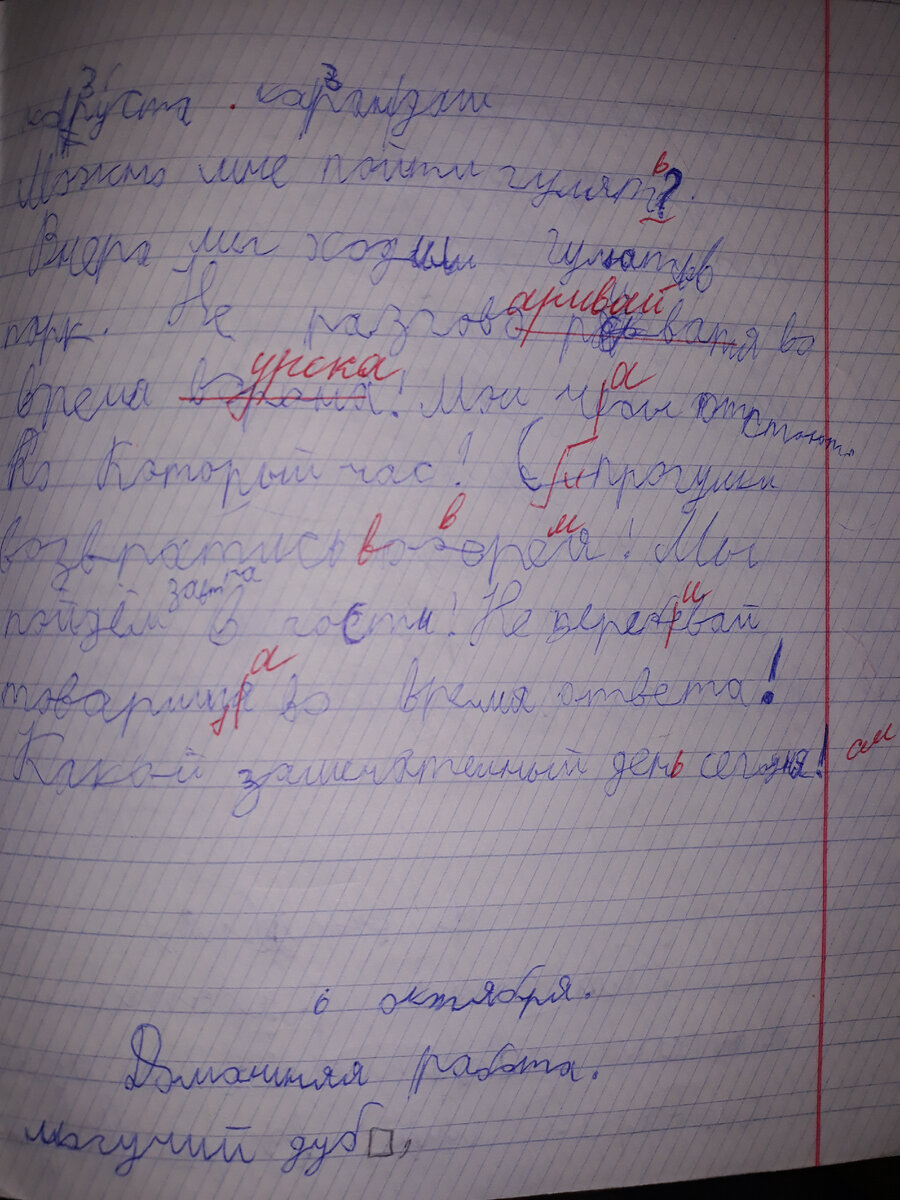 капуста . карандаш
Можно мне пойти гулять?
Вчера мы ходили гулять в
парк. Не разговаривай во
время урока! Мои часы отстают.
Который час! С прогулки
возвратись вовремя! Мы
пойдём завтра в гости! Не перебивай
товарища во время ответа!
Какой замечательный день сегодня! ам
6 октября.
Домашняя работа.
могучий дуб□,